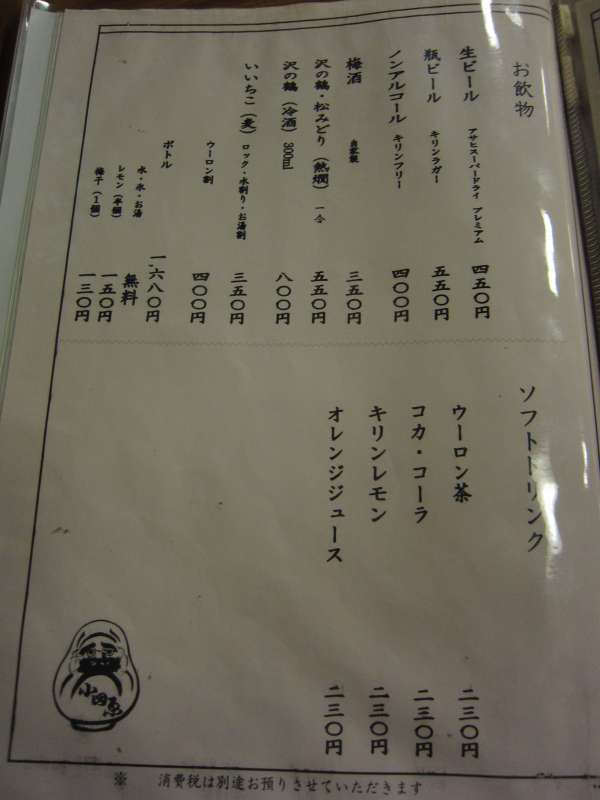 お飲物
生ビール アサヒスーパードライ プレミアム 四五〇円
瓶ビール キリンラガー 五五〇円
ノンアルコール キリンフリー 四〇〇円
梅酒 自家製 三五〇円
沢の鶴・松みどり（熱燗） 一合 五五〇円
沢の鶴（冷酒）300ml 八〇〇円
いいちこ（麦） ロック・水割り・お湯割 三五〇円
ウーロン割 四〇〇円
ボトル 一、六八〇円
水・氷・お湯 無料
レモン（半個） 一五〇円
梅干（1個） 一三〇円
ソフトドリンク
ウーロン茶 二三〇円
コカ・コーラ 二三〇円
キリンレモン 二三〇円
オレンジジュース 二三〇円
小田原
※ 消費税は別途お預りさせていただきます